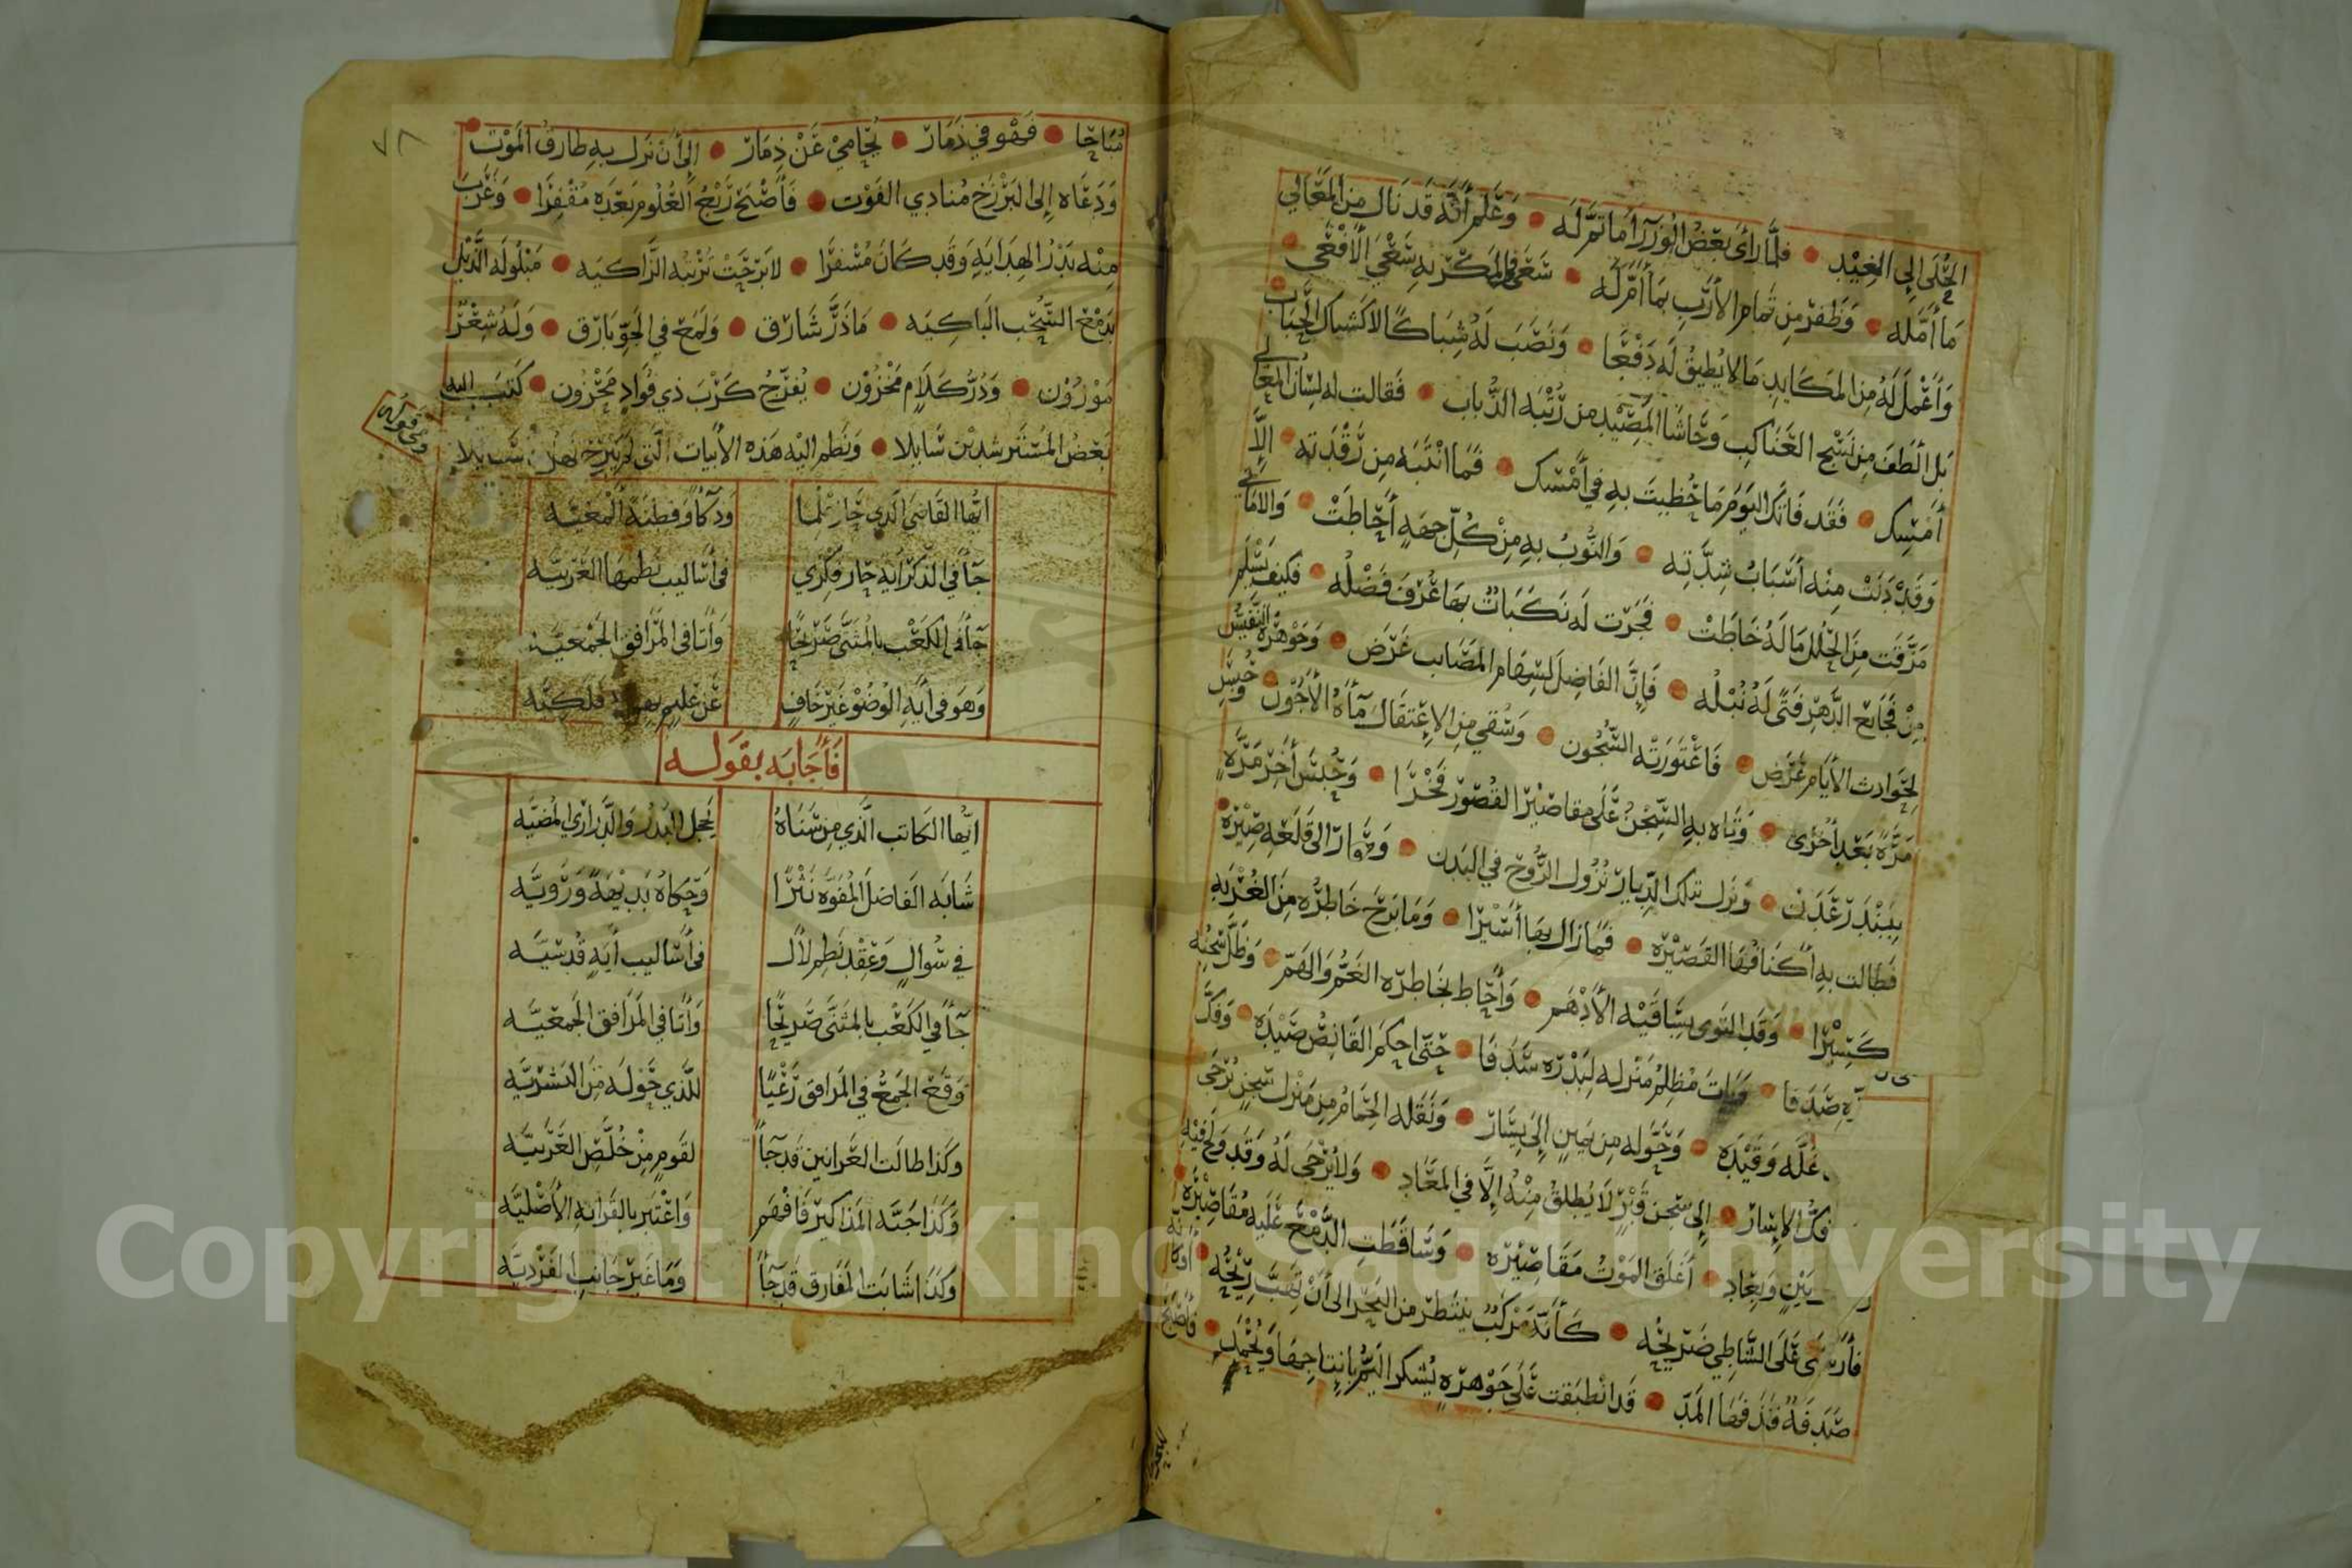 الحلى إلى الغيد • فلما رأى بعض الوزراء ما تم له • وعلم أنه قد نال من المعالي
ما أمله • وظفر من تمام الأرب بما أم له • سعى والمكر به سعي الأفعى •
وأعمل له من المكايد ما لا يطيق له دفعا • ونصب له شباكا لا كشباك الحباب •
بل ألطف من نسج العناكب وحاشا المصيد من رتبة الذباب • فقالت له لسان المعالي
أمسك • فقد فاتك اليوم ما حظيت به في أمسك • فما انتبه من رقدته • إلا
وقد دنت منه أسباب شدته • والنوب به من كل جهة أحاطت • والأماني
مزقت من الحلل ما له خاطت • فجرت له نكبات بها عرف فضله • فكيف يسلم
من فجايع الدهر فتى له نبله • فإن الفاضل لسهام المصايب غرض • وجوهره النفيس
لحوادث الأيام عرض • فاعتورته السجون • وسقي من الاعتقال ماء الأجون • وحبس
مرة بعد أخرى • وتاه به السجن على مقاصير القصور فخرا • وحبس أخر مرة
ببندر عدن • ونزل تلك الديار نزول الروح في البدن • وتوارى إلى قلعة صيرة •
فطالت به أكنافها القصيرة • فما زال بها أسيرا • وما برح خاطره من الغربة
كسيرا • وقد التوى بساقيه الأدهم • وأحاط بخاطره الغم والهم • وظل سجنه
صدفا • وبات مظلم منزله لبدره سدفا • حتى احكم القانص صيده • وفك
غله وقيده • وحوله من يمين إلى يسار • ونقله الحمام من منزل سجن يرجى
فك الإسار • إلى سجن قبر لا يطلق منه إلا في المعاد • ولا يرجى له وقد ولج فيه
بين وبعاد • أغلق الموت مقاصيره • وساقطت الدمع عليه مقاصيره •
فأرسى على الشاطي ضريحه • كأنه مركب ينتظر من البحر إلى أن تهب ريحه •
صدفة قذفها المد • قد انطبقت على جوهرة يشكر اليم بانتاجها ويحمد • فأصبح
٧٨
مباحا • فهو في ذمار • يحامي عن ذمار • إلى أن نزل به طارق الموت •
ودعاه إلى البرزخ منادي الفوت • فأصبح ربع العلوم بعده مقفرا • وغرب
منه بدر الهداية وقد كان مسفرا • لا برحت تربته الزاكيه • مبلولة الذيل
بدمع السحب الباكيه • ما ذر شارق • ولمع في الجو بارق • وله شعر
موزون • ودر كلام مخزون • يفرج كرب ذي فؤاد محزون • كتب اليه
بعض المسترشدين سايلا • ونظم اليه هذه الأبيات التي لم يبرح نهلها سيلا
وهي قوله
ايها القاضي الذي حاز علما وذكاء وفطنة ألمعيه
جاء في الذكر آية حار فكري في أساليب نظمها العربيه
جاء في الكعب بالمثنى صريحا وأتا في المرافق الجمعيه
وهو في آية الوضوء غير خاف عن عليم
فأجابه بقوله
ايها الكاتب الذي من سناه يخجل البدر والدراري المضيه
شابه الفاضل المفوه نثرا وحكاه بديهة ورويه
في سوال وعقد نظم لآل في أساليب آية قدسيه
جاء في الكعب بالمثنى صريحا وأتا في المرافق الجمعيه
وقع الجمع في المرافق رعيا للذي حوله من البشريه
وكذا طالت العرانين قد جا لقوم من خلص العربيه
وكذا جبة المذاكير فافهم واعتبر بالقرابة الأصليه
وكذا شابت المفارق قد جا وما غير جانب الفرديه
Copyright © King Saud University